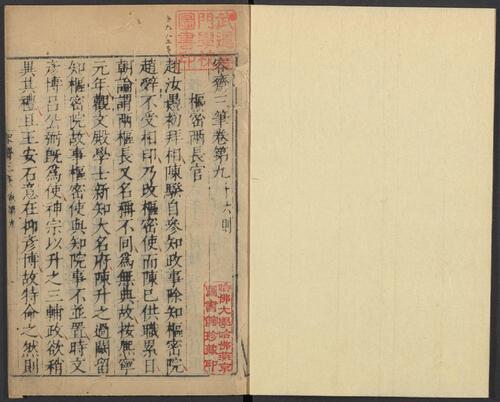 容齋三筆卷第九 十六則
樞密兩長官
趙汝愚初拜相陳騤自參知政事除知樞密院
趙辭不受相印乃改樞密使而陳已供職累日
朝論謂兩樞長又名稱不同為無典故按熙寧
元年觀文殿學士新知大名府陳升之過闕留
知樞密院故事樞密使與知院事不並置時文
彥博呂公弼既為使神宗以升之三輔政欲稍
異其禮且王安石意在抑彥博故特命之然則
哈佛大學哈佛燕京
圖書館珍藏印